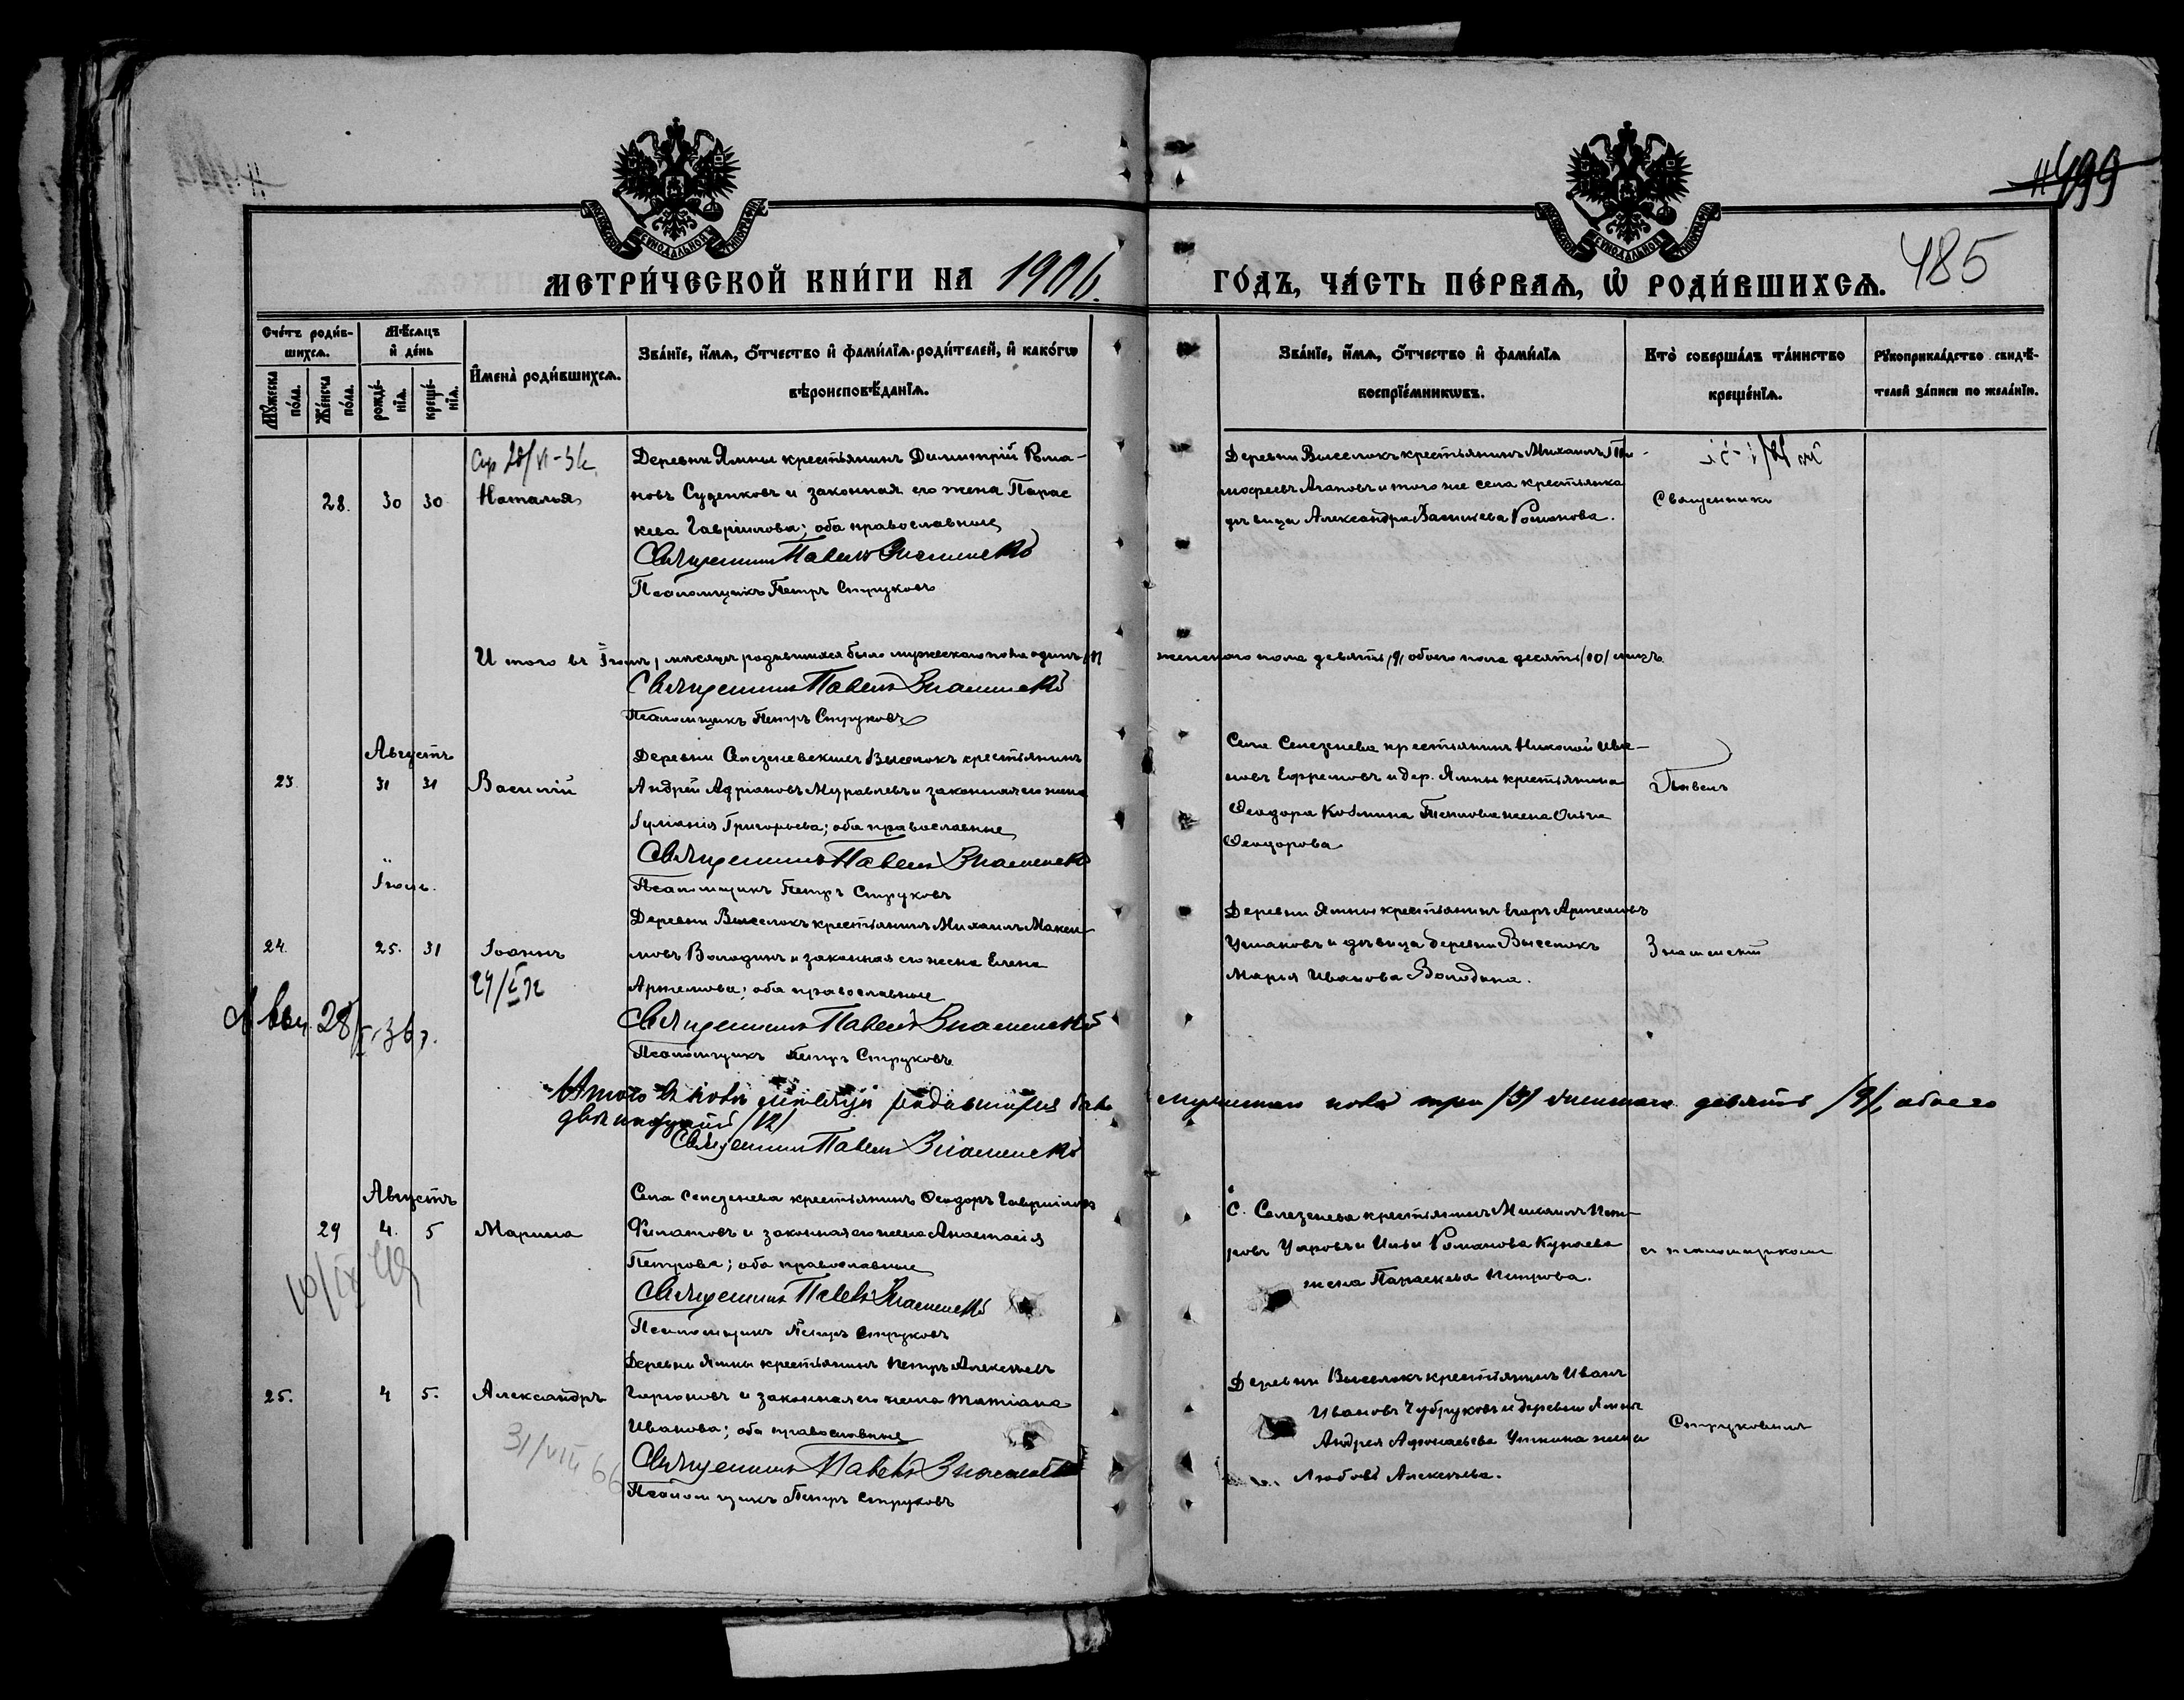 499
485
МЕТРИ́ЧЕСКОЙ КНИ́ГИ НА 1906.
ГО́ДЪ, ЧА́СТЬ ПЕ́РВАѦ, Ѡ҆ РОДИ́ВШИХСѦ.
Сче́тъ роди́в-
шихсѧ.
Мꙋ́жеска по́ла.
Же́нска по́ла.
Мѣ́сѧцъ
и҆ де́нь
рожде́-
нїѧ.
креще́-
нїѧ.
И҆мена̀ роди́вшихсѧ.
Зва́нїе, и҆́мѧ, ѻ҆́тчество и҆ фами́лїѧ роди́телей, и҆ како́гѡ
вѣроисповѣ́данїѧ.
Зва́нїе, и҆́мѧ, ѻ҆́тчество и҆ фами́лїѧ
воспрїе́мникѡвъ.
Кто̀ соверша́лъ та́инство
креще́нїѧ.
Рꙋкоприкла́дство свидѣ́-
телей за́писи по жела́нїю.
28. 30 30 Наталья
Деревни Ямны крестьянинъ Димитрій Рома-
новъ Суденковъ и законная его жена Парас
кева Гавріилова; оба православные
Священникъ Павелъ Знаменскій
Псаломщикъ Петръ Струковъ
Деревни Выселокъ крестьянинъ Михаилъ Ти-
мофеевъ Агаповъ и того же села крестьянка
дѣвица Александра Васильева Романова.
Священникъ
И того въ Іюлѣ мѣсяцѣ родившихся было мужескаго пола одинъ /1/
женскаго пола девять /9/ обоего пола десять /10/
Священникъ Павелъ Знаменскій
Псаломщикъ Петръ Струковъ
Августъ
23 31 31 Василій
Деревни Селезневскихъ Выселокъ крестьянинъ
Андрей Адріановъ Муравлевъ и законная его жена
Іуліанія Григорьева; оба православные
Священникъ Павелъ Знаменскій
Псаломщикъ Петръ Струковъ
Села Селезнева крестьянинъ Николай Ива-
новъ Ефремовъ и дер. Ямны крестьянина
Ѳеодора Козмина Теплова жена Ольга
Ѳеодорова
Павелъ
Іюль.
24. 25. 31 Іоаннъ
Деревни Выселокъ крестьянинъ Михаилъ Макси-
мовъ Володинъ и законная его жена Елена
Артемова; оба православные
Священникъ Павелъ Знаменскій
Псаломщикъ Петръ Струковъ
Деревни Ямны крестьянинъ Егоръ Артемовъ
Ушаковъ и дѣвица деревни Выселокъ
Марья Иванова Володина.
Знаменскій
Итого въ Іюлѣ мѣсяцѣ родившихся было
мужескаго пола три /3/ женскаго девять /9/, обоего
двѣнадцать /12/
Священникъ Павелъ Знаменскій
Августъ
29 4. 5 Марина
Села Селезнева крестьянинъ Ѳеодоръ Гавриловъ
Филатовъ и законная его жена Анастасія
Петрова; оба православные
Священникъ Павелъ Знаменскій
Псаломщикъ Петръ Струковъ
С. Селезнева крестьянинъ Михаилъ Пет-
ровъ Уаровъ и Ильи Романова Кунаева
жена Параскева Петрова.
съ псаломщикомъ
25. 4 5. Александръ
Деревни Ямны крестьянинъ Петръ Алексѣевъ
Ларіоновъ и законная его жена Татіана
Иванова; оба православные
Священникъ Павелъ Знаменскій
Псаломщикъ Петръ Струковъ
Деревни Выселокъ крестьянинъ Иванъ
Ивановъ Чубруковъ и деревни Ямны
Андрея Афонасьева Уткина жена
Любовь Алексѣева.
Струковымъ
31/VIII 66